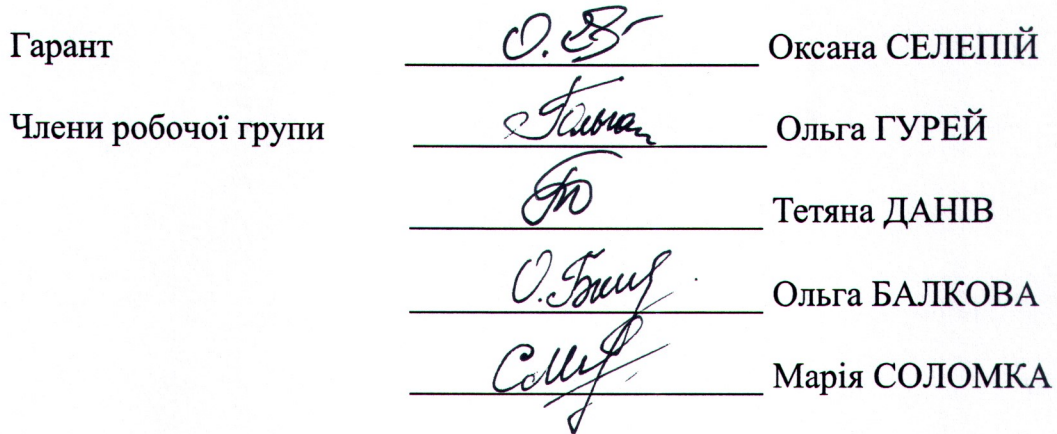 Гарант Оксана СЕЛЕПІЙ
Члени робочої групи Ольга ГУРЕЙ
Тетяна ДАНІВ
Ольга БАЛКОВА
Марія СОЛОМКА